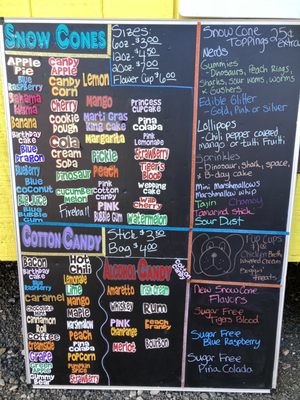 SNOW CONES
Apple Pie
Blue Raspberry
Bahama Mama
Banana
Birthday Cake
Blue Dragon
Blueberry
Blue Coconut
Big Jake
Blue Bubble Gum
Candy Apple
Candy Corn
Cherry
Cookie Dough
Cola
Cream Soda
Dinosaur
Cucumber Melon
Fireball
Lemon
Mango
Marti Gras King Cake
Margarita
Pickle
Peach
Pink Cotton Candy
Pink Bubble Gum
Princess Cupcake
Piña Colada
Pink Lemonade
Strawberry
Tigers Blood
Wedding Cake
Wild Cherry
Watermelon
Sizes:
6oz $3.00
12oz $4.50
Flower Cup $6.00
Snow Cone Toppings 25¢ Extra
Nerds
Gummies
- Dinosaurs, Peach Rings, Sharks, sour worms, & Gushers
Edible Glitter
- Gold, Pink or Silver
Lollipops
- Chili pepper covered mango or tutti frutti
Sprinkles
- Dinosaur, shark, space, & B-day cake
Mini Marshmallows
Marshmallow whip
Tajin Chamoy
Tamarind stick
Sour Dust
COTTON CANDY
Stick $3.50
Bag $4.00
Bacon
Birthday Cake
Blue Raspberry
Caramel
Cinnamon Roll
Coffee
Grape
Gummy Bear
Hot Chili
Lemonade
Lime
Mango
Maple
Marshmallow
Peach
Piña Colada
Popcorn
Pumpkin
Strawberry
Alcohol Candy
Amaretto
Irish Cream
Whiskey
Rum
Pink Champagne
Peach Brandy
Merlot
Bourbon
Pup Cups
Chicken Broth
Whipped Cream
Beggin' Treats
New Snow Cone Flavors
Sugar Free Tigers Blood
Sugar Free Blue Raspberry
Sugar Free Pina Colada